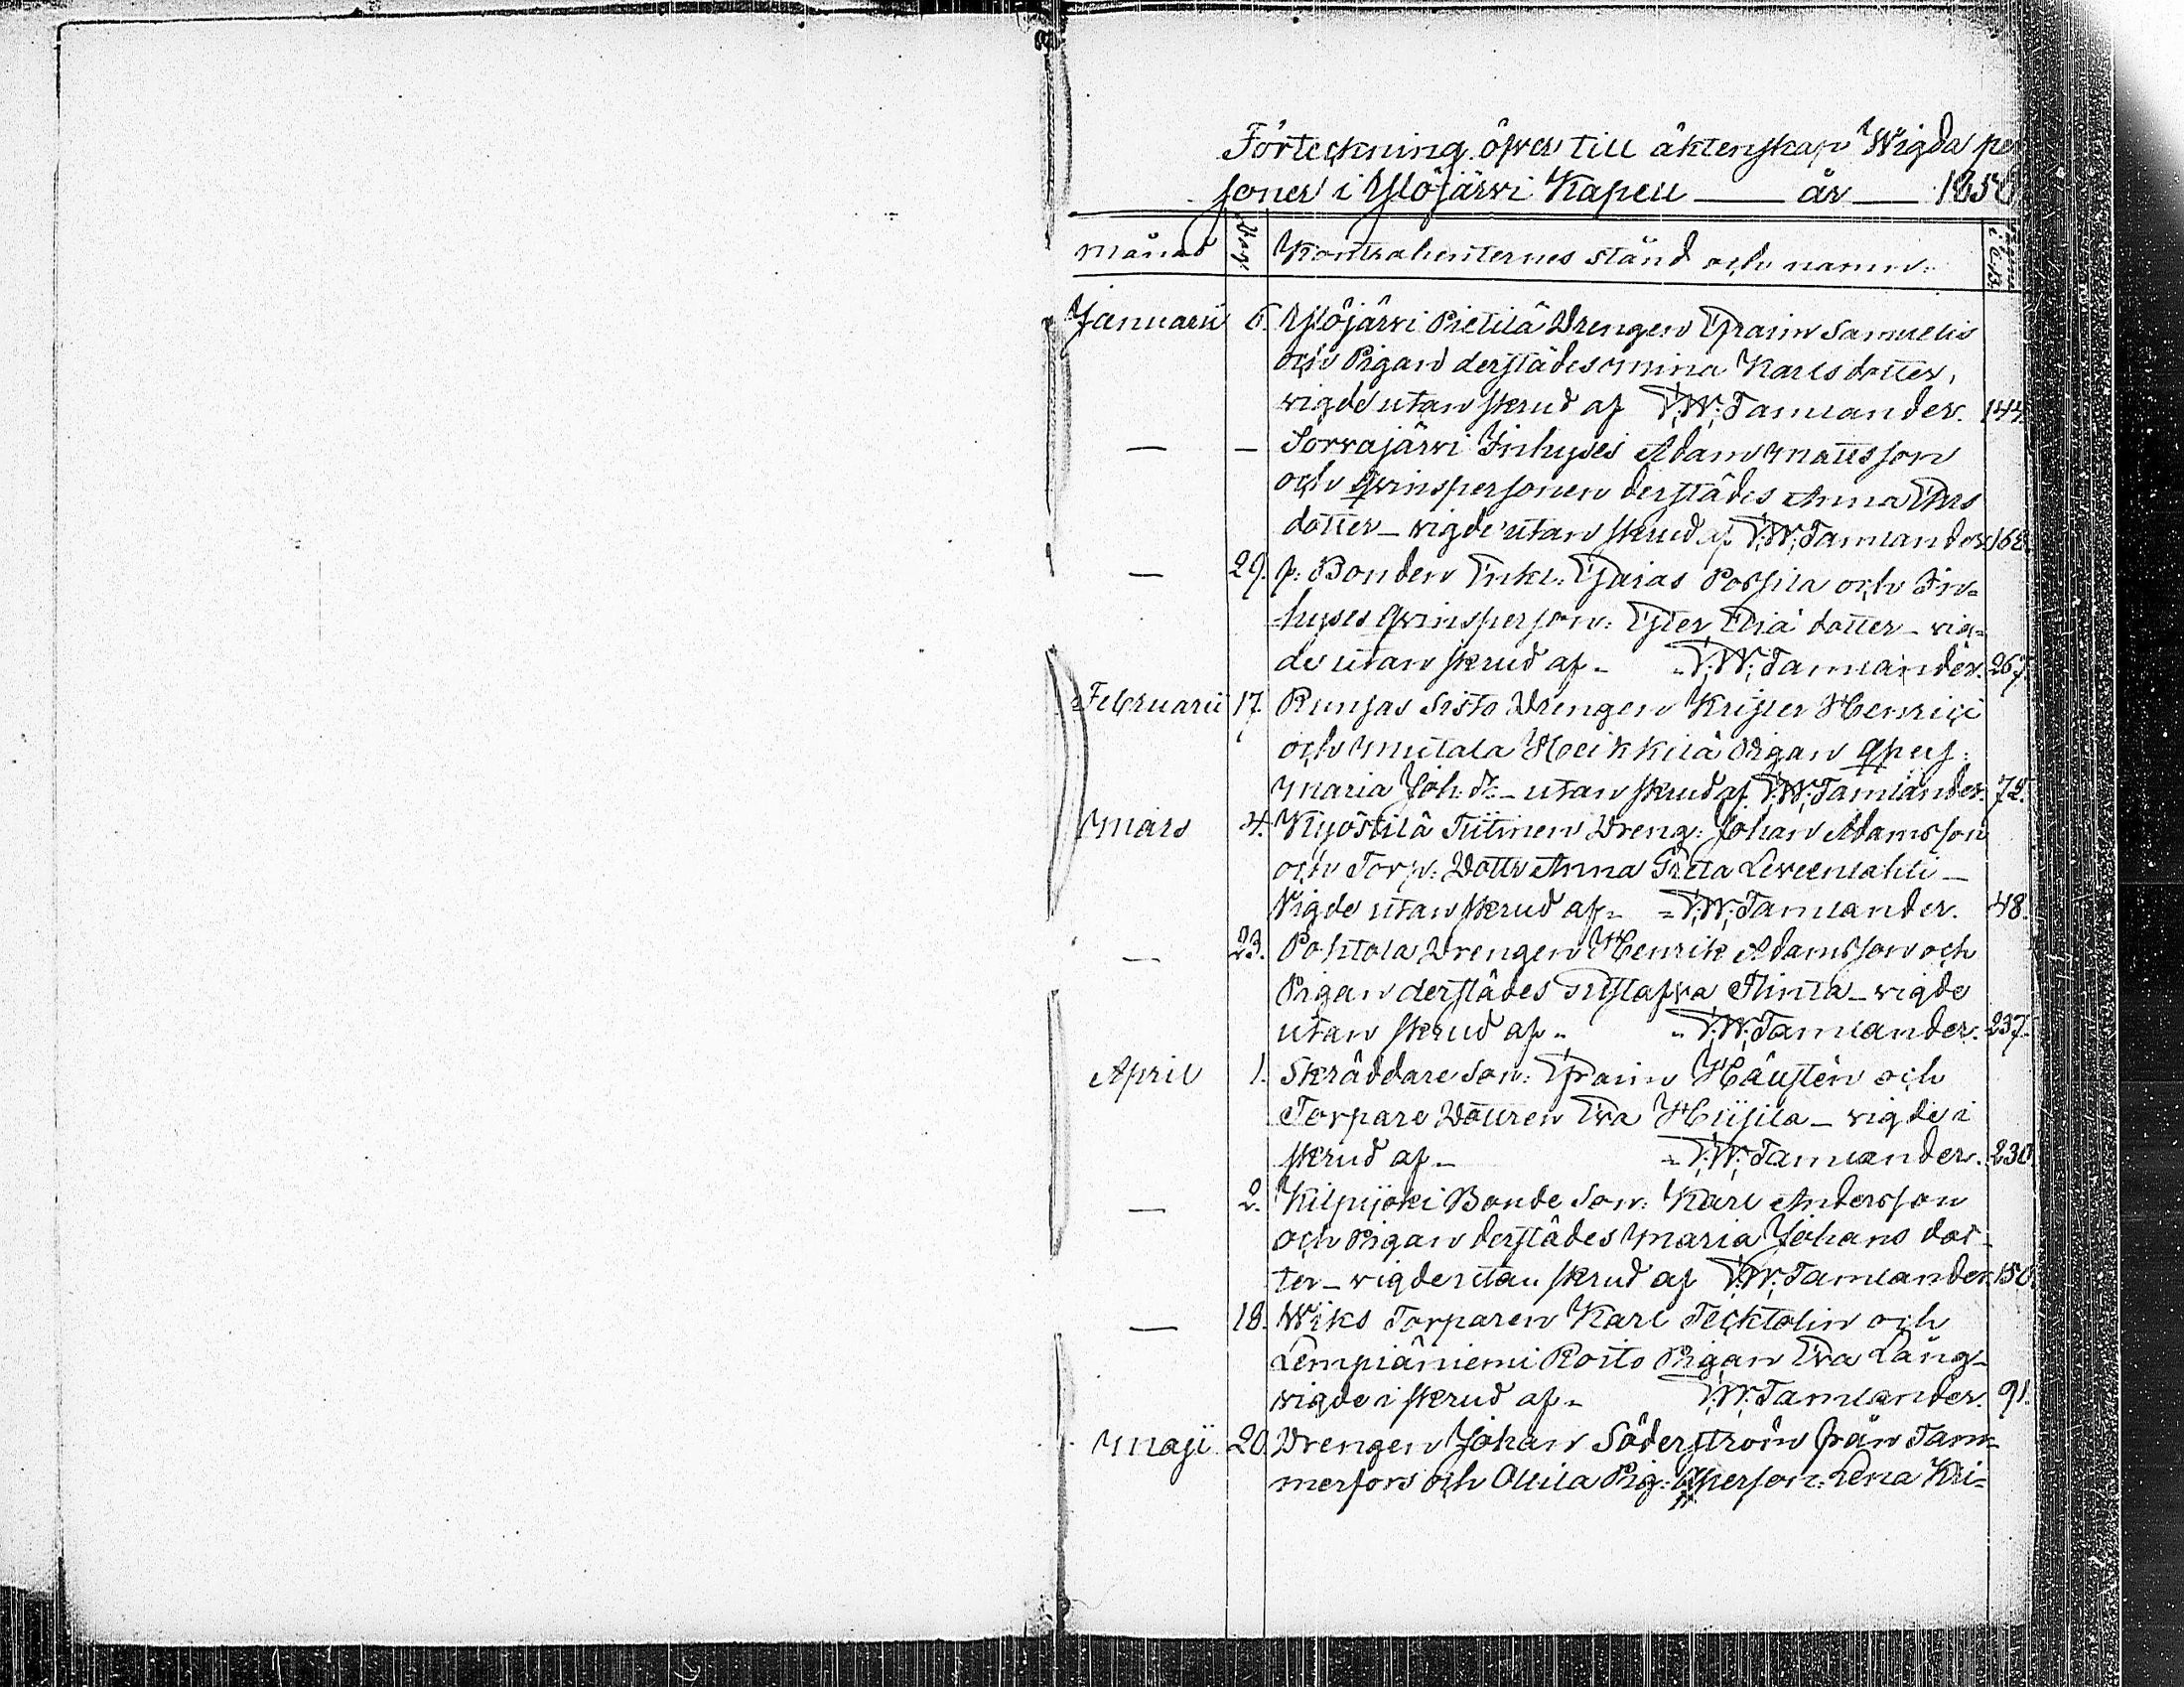 Förteckning öfver till äktenskap Wigda per
soner i Ylöjärvi Kapell — år — 185
Månad Dag Kontrahenternes stånd och namn.
Januarii 6. Ylöjärvi Pietilä Drengen Efraim Samuelis
och Pigan derstädes Mina Karlsdotter,
vigde utan skrud af F. W. Tamlander. 144.
— — Sorvajärvi Inhyses Adam Mattsson
och Qvinspersonen derstädes Anna Ers
dotter – vigde utan skrud af F. W. Tamlander. 168.
— 29. f: Bonden Enkl: Esaias Possila och In=
hyses Qvinsperson: Ester Eliä dotter – vig=
de utan skrud af – F. W. Tamlander. 267.
Februarii 17. Runsas Sisto Drengen Krister Henrici
och Mutala Heikkilä Pigan Qpers:
Maria Joh: dr: – utan skrud af F. W. Tamlander. 72.
Mars 4. Kyöstilä Tiitinen Dreng: Johan Adamsson
och Torp: Dottr Anna Greta Leveenlahti –
Vigde utan skrud af = F. W. Tamlander. 48.
— 23. Pohtola Drengen Henrik Adamsson och
Pigan derstädes Gustafva Flinta – vigde
utan skrud af – F. W. Tamlander. 237.
April 1. Skräddare Son: Efraim Häusten och
Torpare Dottren Eva Hiisila – vigde i
skrud af – F. W. Tamlander. 230.
— 2. Kilpijoki Bonde Son: Karl Andersson
och Pigan derstädes Maria Johans dot=
ter – vigde utan skrud af F. W. Tamlander. 150.
— 18. Wiks Torparen Karl Tecktolin och
Lempiäniemi Roito Pigan Eva Lång –
vigde i skrud af – F. W. Tamlander. 91.
Maji 20. Drengen Johan Söderström från Tam=
merfors och Ollila Pig: Qperson: Lena Kri=